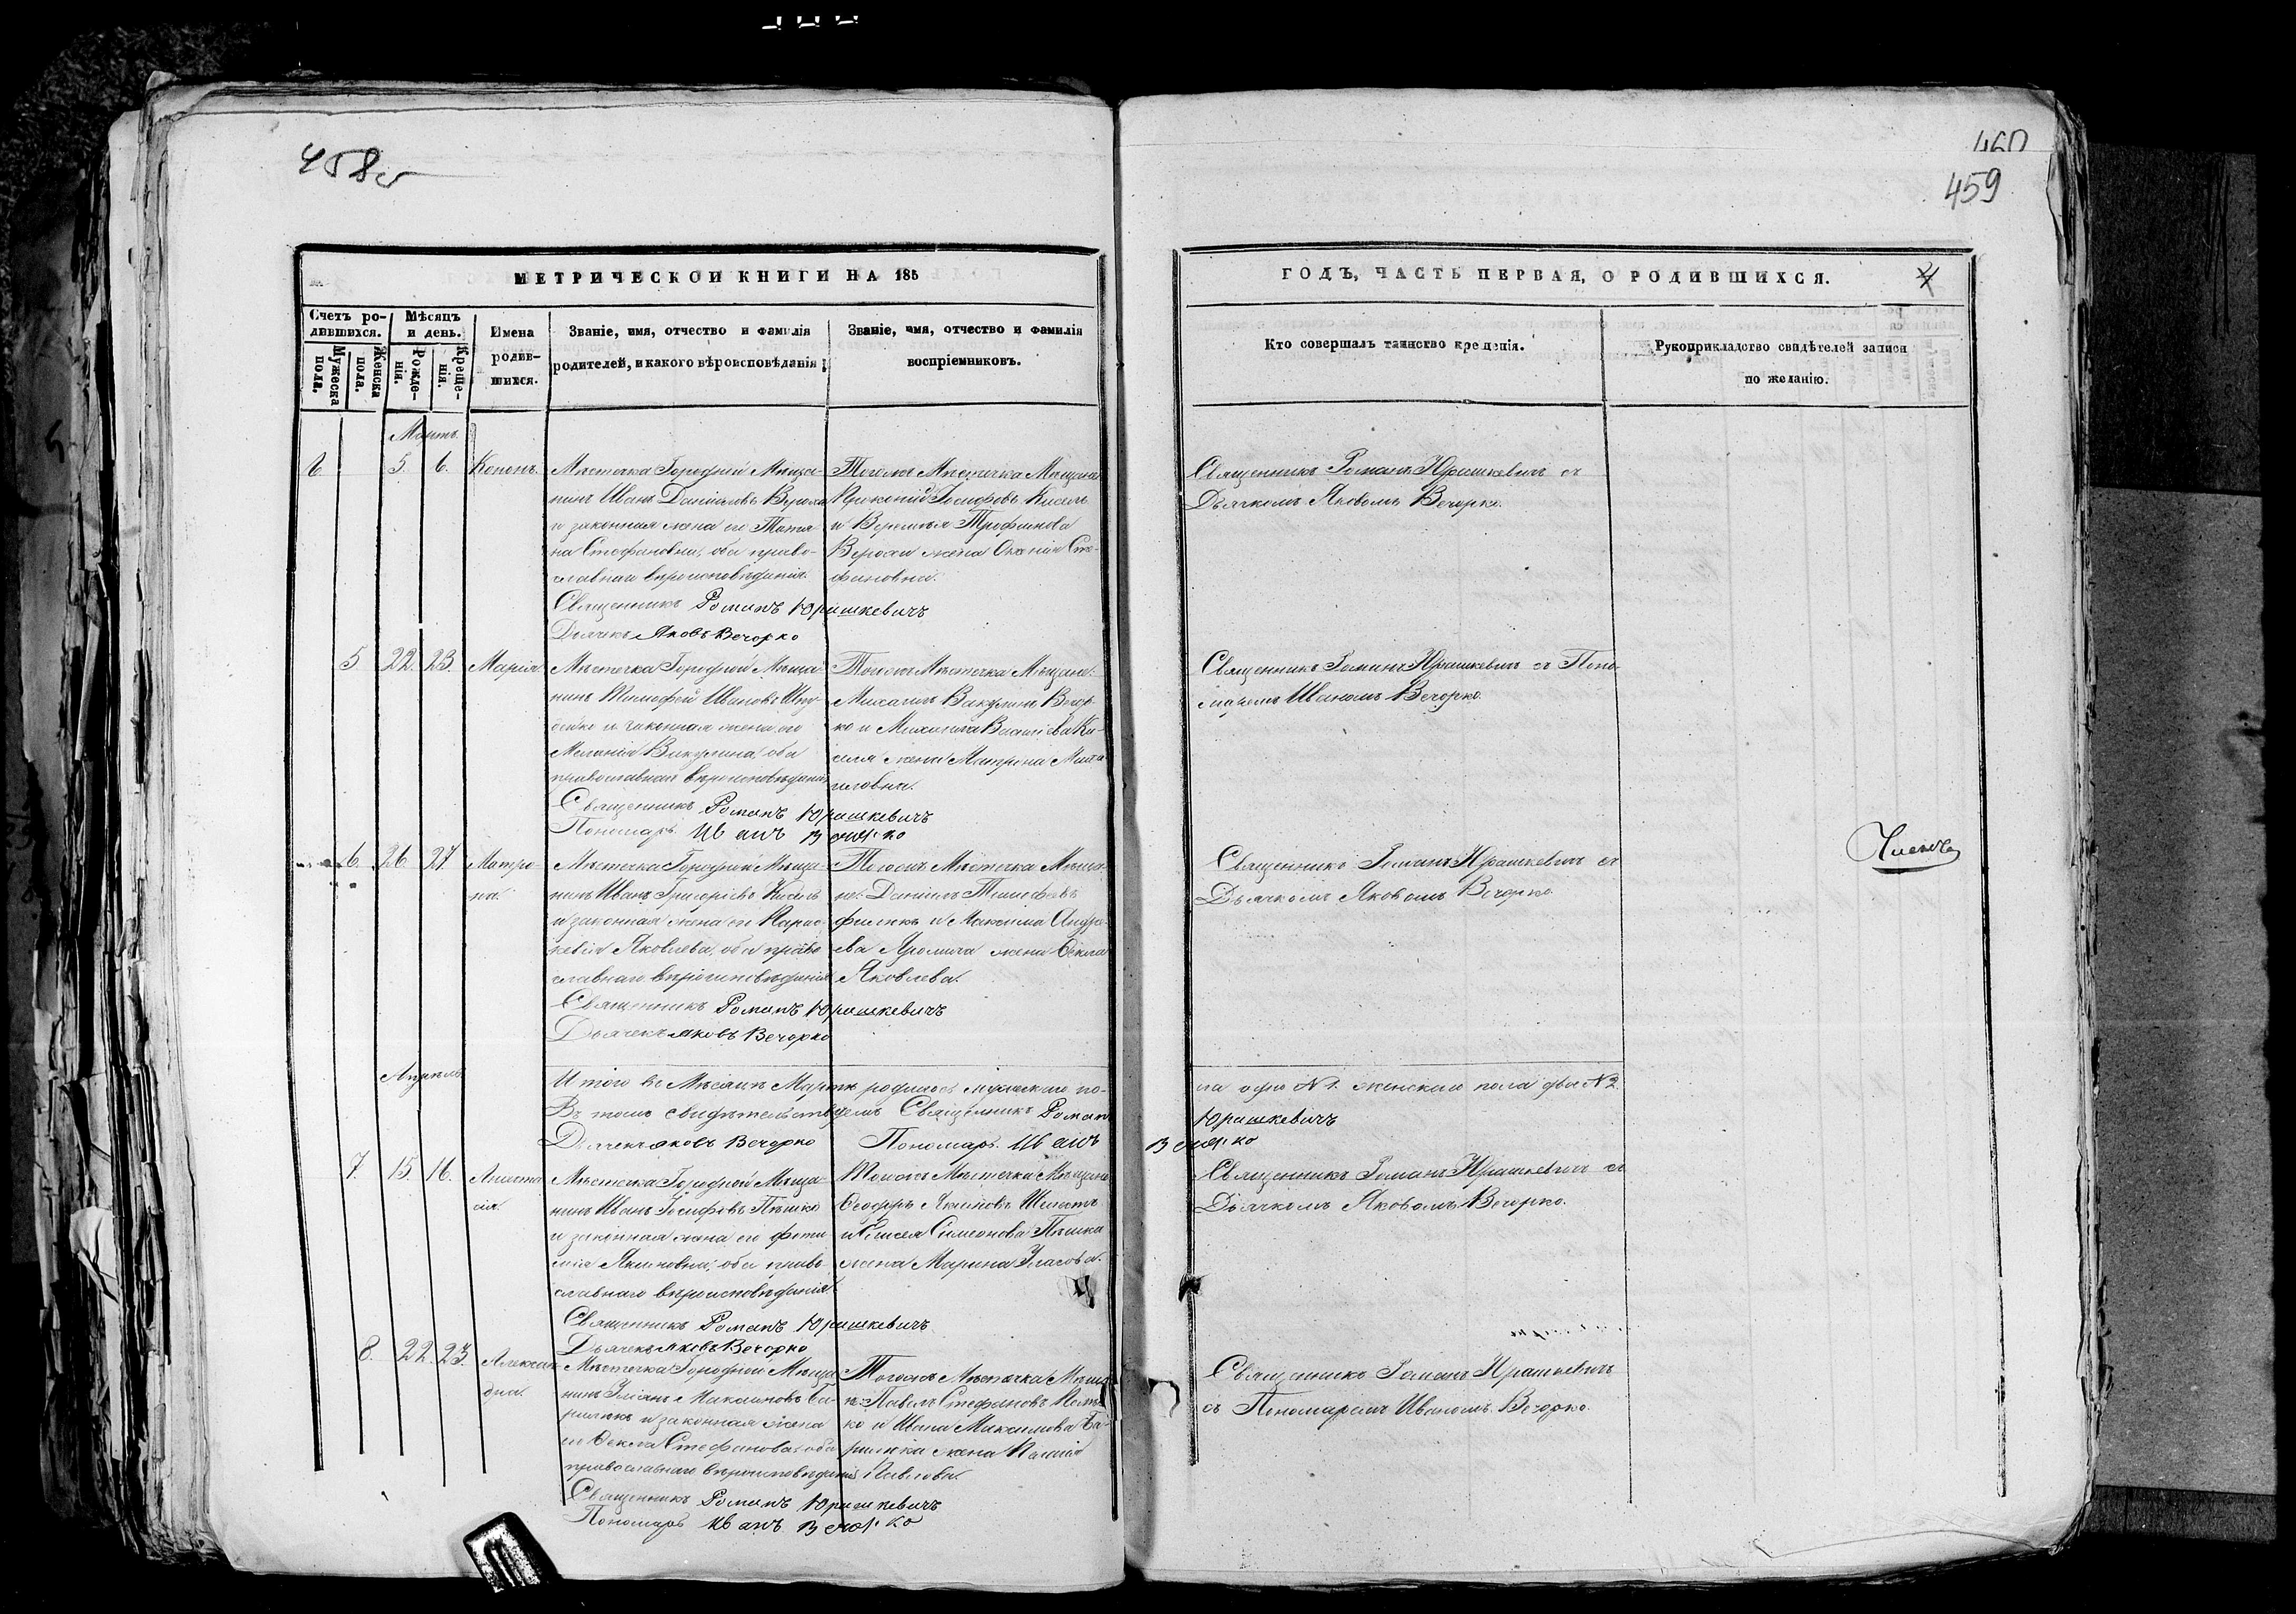 458об
460
459
МЕТРИЧЕСКОЙ КНИГИ НА 185
ГОДЪ, ЧАСТЬ ПЕРВАЯ, О РОДИВШИХСЯ.
Счетъ ро-
дившихся.
Мужеска
пола.
Женска
пола.
Мѣсяцъ
и день.
Рожде-
нія.
Креще-
нія.
Имена
родив-
шихся.
Званіе, имя, отчество и фамилія
родителей, и какого вѣроисповѣданія
Званіе, имя, отчество и фамилія
воспріемниковъ.
Кто совершалъ таинство крещенія.
Рукоприкладство свидѣтелей записи
по желанію.
Мартъ
6 5. 6. Кононъ
Мѣстечка Городной Мѣща-
нинъ Иванъ Даніиловъ
и законная жена его Татья
на Стефановна, оба право-
славнаго вѣроисповѣданія.
Священникъ Романъ Юрашкевичъ
Дьячекъ Яковъ Вечорко
Тогожъ Мѣстечка Мѣщане
Прокопій Іосифовъ Кисель
и Трофимова
жена Сте-
фановна.
Священникъ Романъ Юрашкевичъ съ
Дьячкомъ Яковомъ Вечорко.
5 22. 23. Марія
Мѣстечка Городной Мѣща-
нинъ Тимофей Ивановъ
и законная жена его
Меланія Викулина, оба
православнаго вѣроисповѣданія
Священникъ Романъ Юрашкевичъ
Пономарь Иванъ Вечорко
Тогожъ Мѣстечка Мѣщане
Михаилъ Викулинъ Вечор-
ко и Михаила Васильева Ки-
селя жена Матрона Миха
иловна.
Священникъ Романъ Юрашкевичъ съ Поно-
маремъ Иваномъ Вечорко.
6. 26 27. Матро-
на.
Мѣстечка Городной Мѣща-
нинъ Иванъ Григорьевъ Кисель
и законная жена его
Яковлева, оба право
славнаго вѣроисповѣданія
Священникъ Романъ Юрашкевичъ
Дьячекъ Яковъ Вечорко
Тогожъ Мѣстечка Мѣща-
не Даніилъ
и Максима Андре-
ева жена Ѳекла
Яковлева.
Священникъ Романъ Юрашкевичъ съ
Дьячкомъ Яковомъ Вечорко.
Апрѣль
Итого въ Мѣсяцѣ Мартѣ родилось мужескаго по-
ла одно №1. женскаго пола двѣ №2.
Въ томъ свидѣтельствуемъ Священникъ Романъ
Юрашкевичъ
Дьячекъ Яковъ Вечорко Пономарь Иванъ
Вечорко
7. 15. 16. Анаста
сія.
Мѣстечка Городной Мѣща-
нинъ Иванъ Іосифовъ Пѣшко
и законная жена его
Якимовна, оба право
славнаго вѣроисповѣданія.
Священникъ Романъ Юрашкевичъ
Дьячекъ Яковъ Вечорко
Тогожъ Мѣстечка Мѣщане
Ѳеодоръ Якимовъ
и Симеонова Пѣшка
жена Марина Власова.
Священникъ Романъ Юрашкевичъ съ
Дьячкомъ Яковомъ Вечорко.
8. 22. 23. Алексан
дра.
Мѣстечка Городной Мѣща
нинъ Максимовъ Ба-
рилюкъ и законная жена
его Ѳекла Стефанова, оба
православнаго вѣроисповѣданія
Священникъ Романъ Юрашкевичъ
Пономарь Иванъ Вечорко
Тогожъ Мѣстечка Мѣща
не Павелъ Стефановъ
ко и Ивана Максимова Ба-
рилюка жена
Павлова.
Священникъ Романъ Юрашкевичъ
съ Пономаремъ Иваномъ Вечорко.